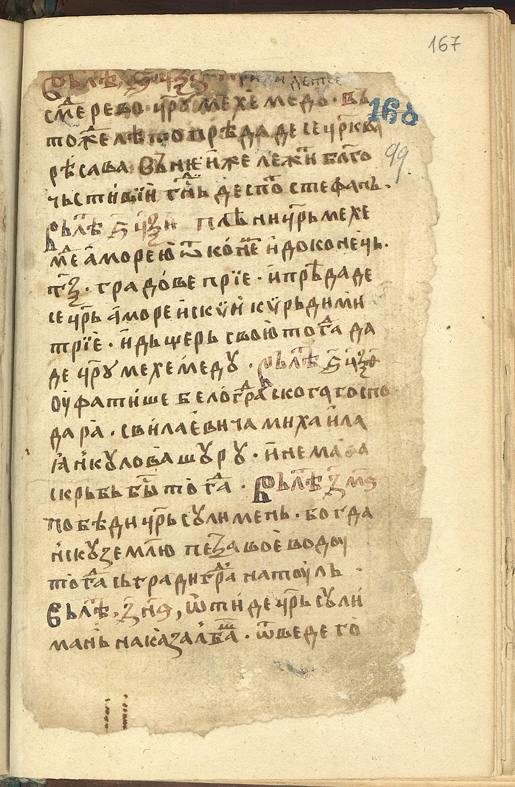 167
168
99
Въ лѣ
смедерево чр҃у мехемедо въ
тожⷣе лѣто прѣдаде се чр҃ква
рѣсава вънеи же лежи блг҃о
чьстивіи гн҃ь деспо стефань
Въ лѣ ҂ѕ҃ц҃ѯ҃н плѣни чр҃ь мехе
ме҃ аморею ѿ коне и до конець
п҃ѯ градове прїе и прѣдаде
се чр҃ь аморейскуи кѵрь дими
трїе и дьщерь свою тог҃а да
де чр҃у мехемеду Въ лѣ
оуфатише белогр҃аского госпо
дара свилаевича михаила
ꙗнкулова шуру и нема ꙗ
скрьбь бы тог҃а Въ лѣ ҂з҃м҃ѕ
победи чр҃ь сулимень богда
нску землю воеводоу
тог҃а съгради гр҃а натоуль
Въ лѣ ҂з҃н҃ѳ ѿтиде чр҃ь сули
мань на казальба ѿведе го